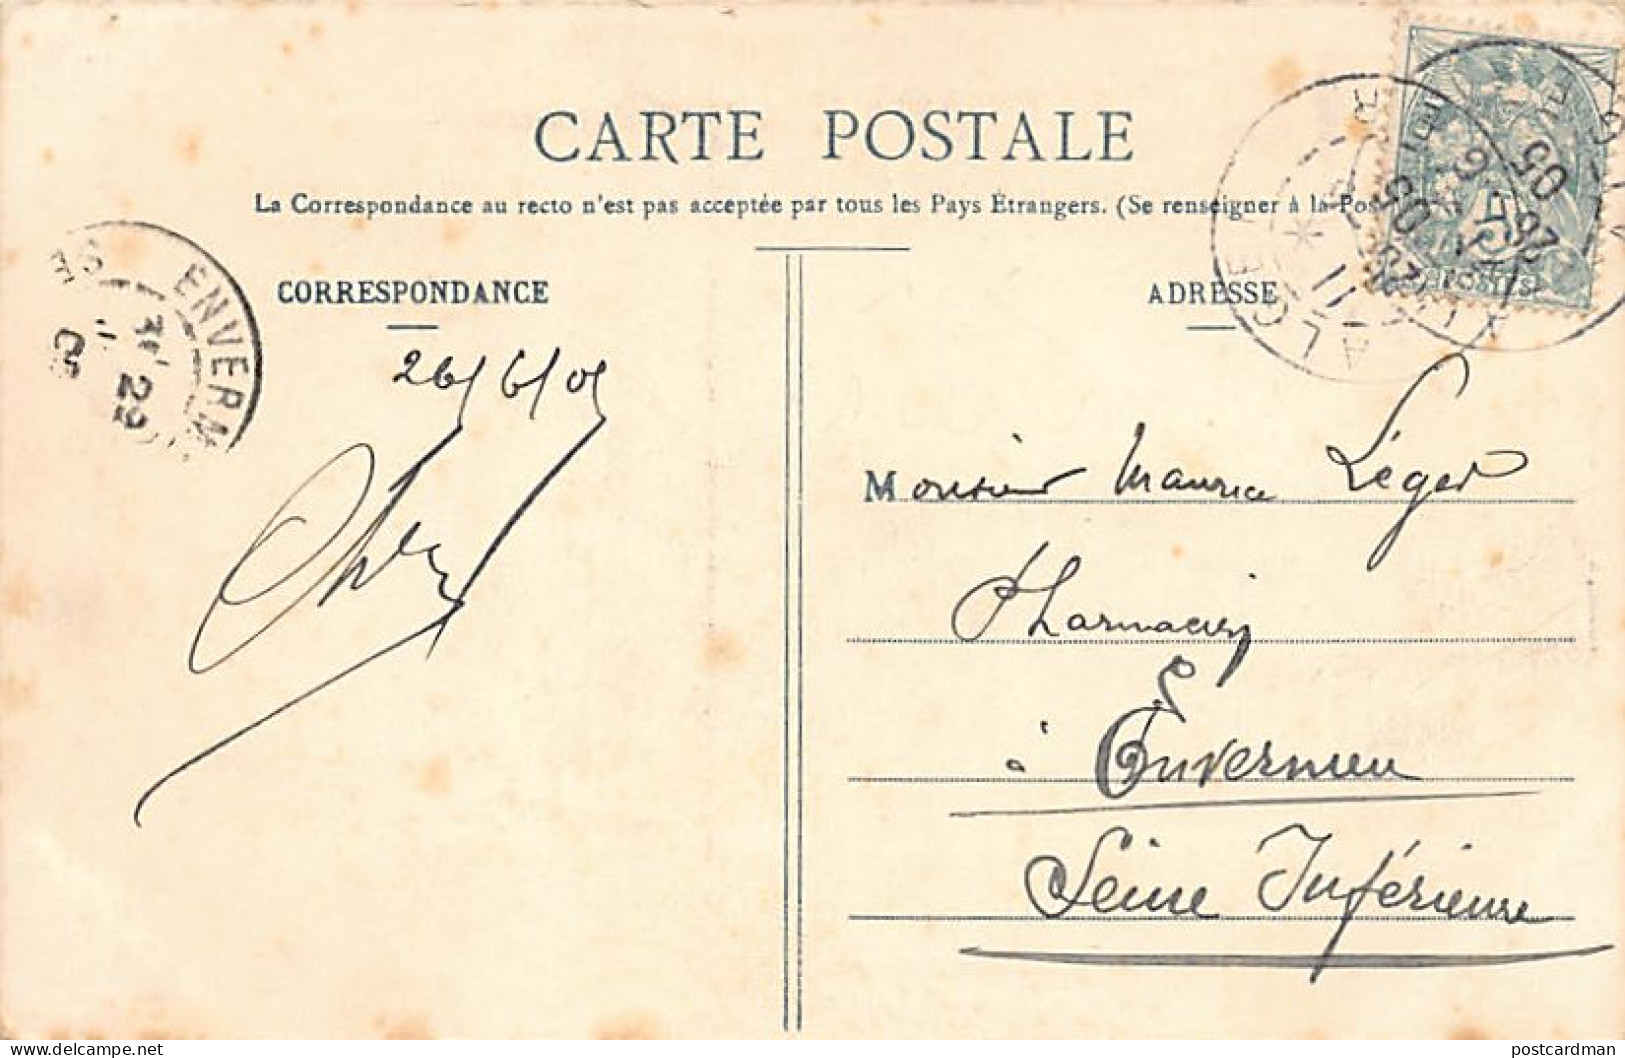 CARTE POSTALE
La Correspondance au recto n'est pas acceptée par tous les Pays Étrangers. (Se renseigner à la Pos
CORRESPONDANCE
26/6/05
ADRESSE
Monsieur Maurice Léger
Pharmacien
à Envermeu
Seine Inférieure
ENVERM
22
ALGER
11
26
6
05
5
POSTES
postcardman